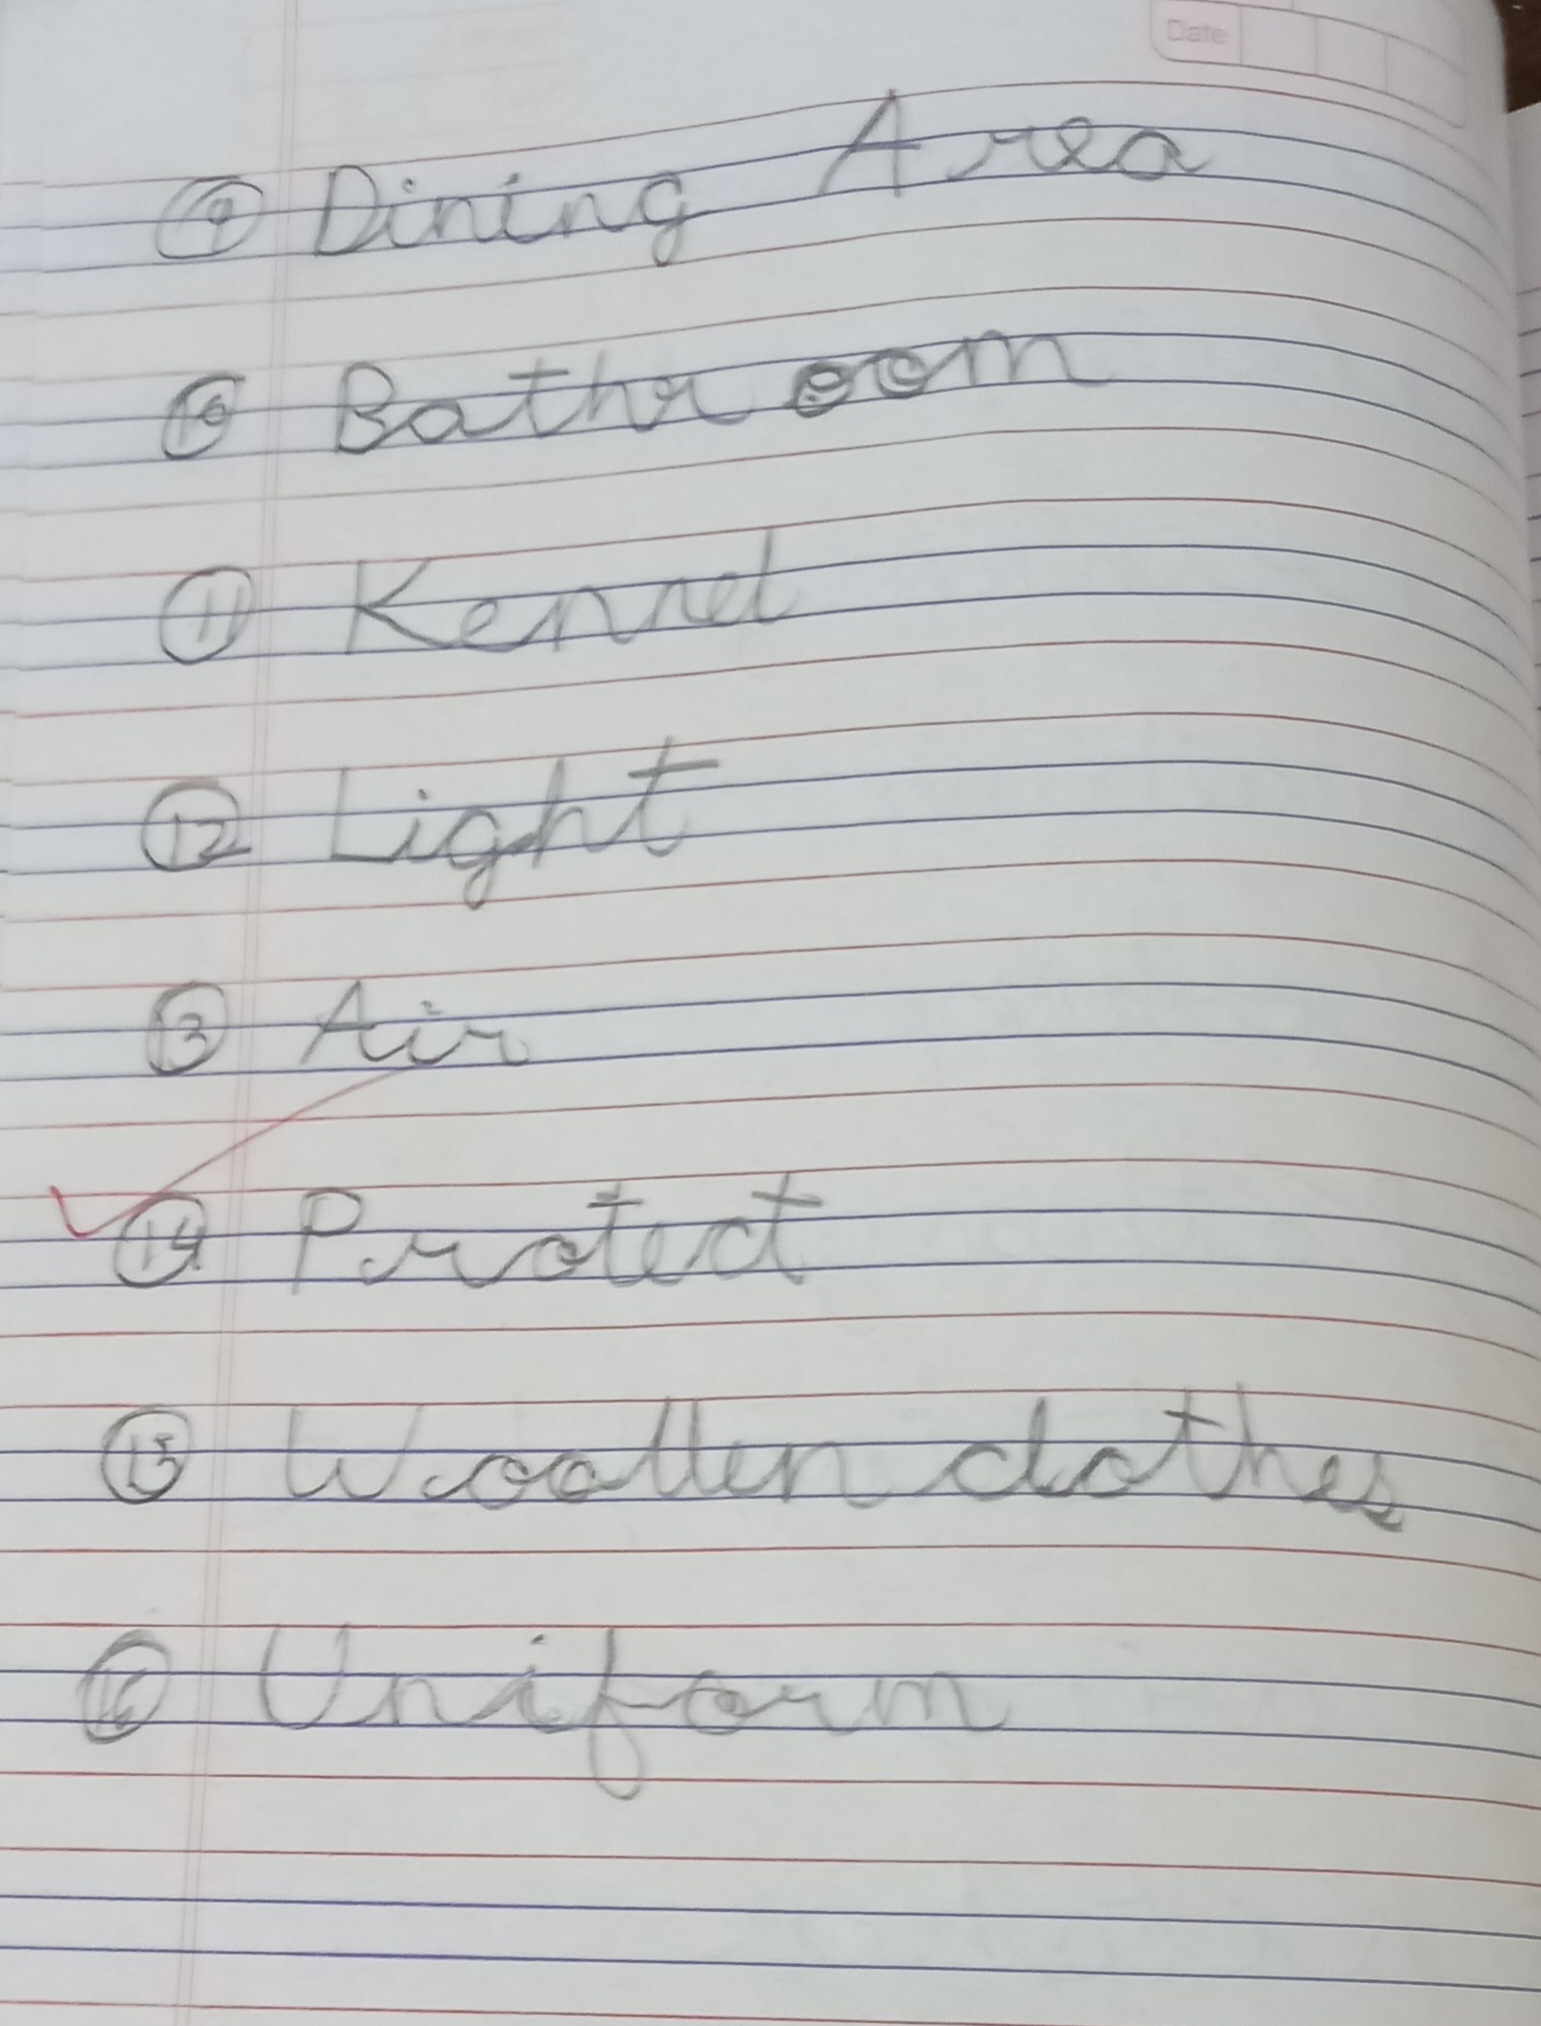 Date
9 Dining Area
10 Bathroom
11 Kennel
12 Light
13 Air
14 Protect
15 Woollen clothes
16 Uniform